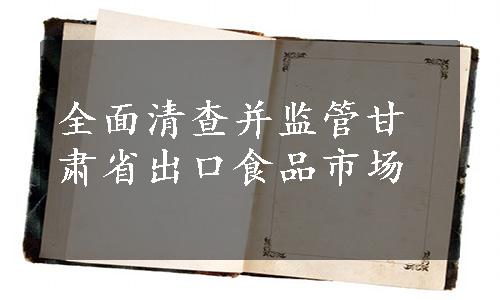 全面清查并监管甘
肃省出口食品市场